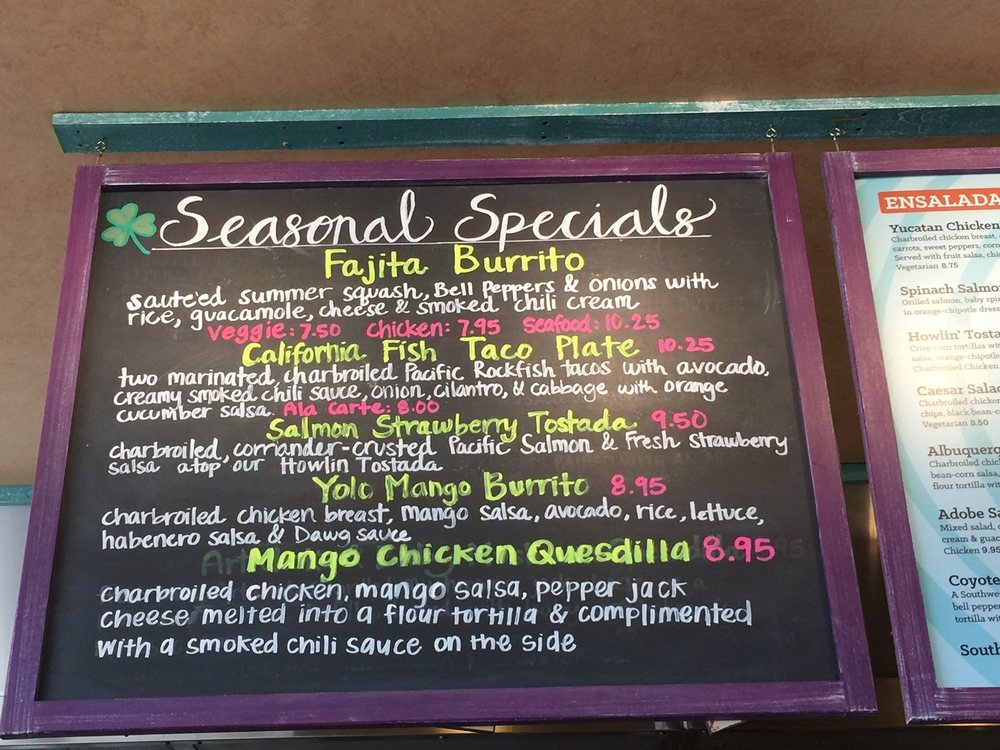 Seasonal Specials
Fajita Burrito
sauté'ed summer squash, Bell Peppers & onions with
rice, guacamole, cheese & smoked chili cream
Veggie: 7.50 Chicken: 7.95 Seafood: 10.25
California Fish Taco Plate 10.25
two marinated, charbroiled Pacific Rockfish tacos with avocado,
creamy smoked chili sauce, onion, cilantro, & cabbage with orange
cucumber salsa. Ala Carte: 8.00
Salmon Strawberry Tostada 9.50
charbroiled, corriander-crusted Pacific Salmon & Fresh Strawberry
salsa atop our Howlin Tostada
Yolo Mango Burrito 8.95
charbroiled chicken breast, mango salsa, avocado, rice, lettuce,
habenero salsa & Dawg sauce
Mango Chicken Quesdilla 8.95
charbroiled chicken, mango salsa, pepper jack
cheese melted into a flour tortilla & complimented
with a smoked chili sauce on the side
ENSALADA
Yucatan Chicken
Charbroiled chicken breast,
carrots, sweet peppers, corn
Served with fruit salsa,
Vegetarian 8.75
Spinach
Grilled salmon, baby
in orange-chipotle
Howlin'
Crisp corn tortillas
salsa, orange-chipotle
Charbroiled Chicken
Caesar
Charbroiled
chips,
Vegetarian 8.50
Charbroiled
bean-corn salsa,
flour tortilla
Adobe
Mixed salad,
cream &
Chicken 9.95
Coyote
A
bell
tortilla